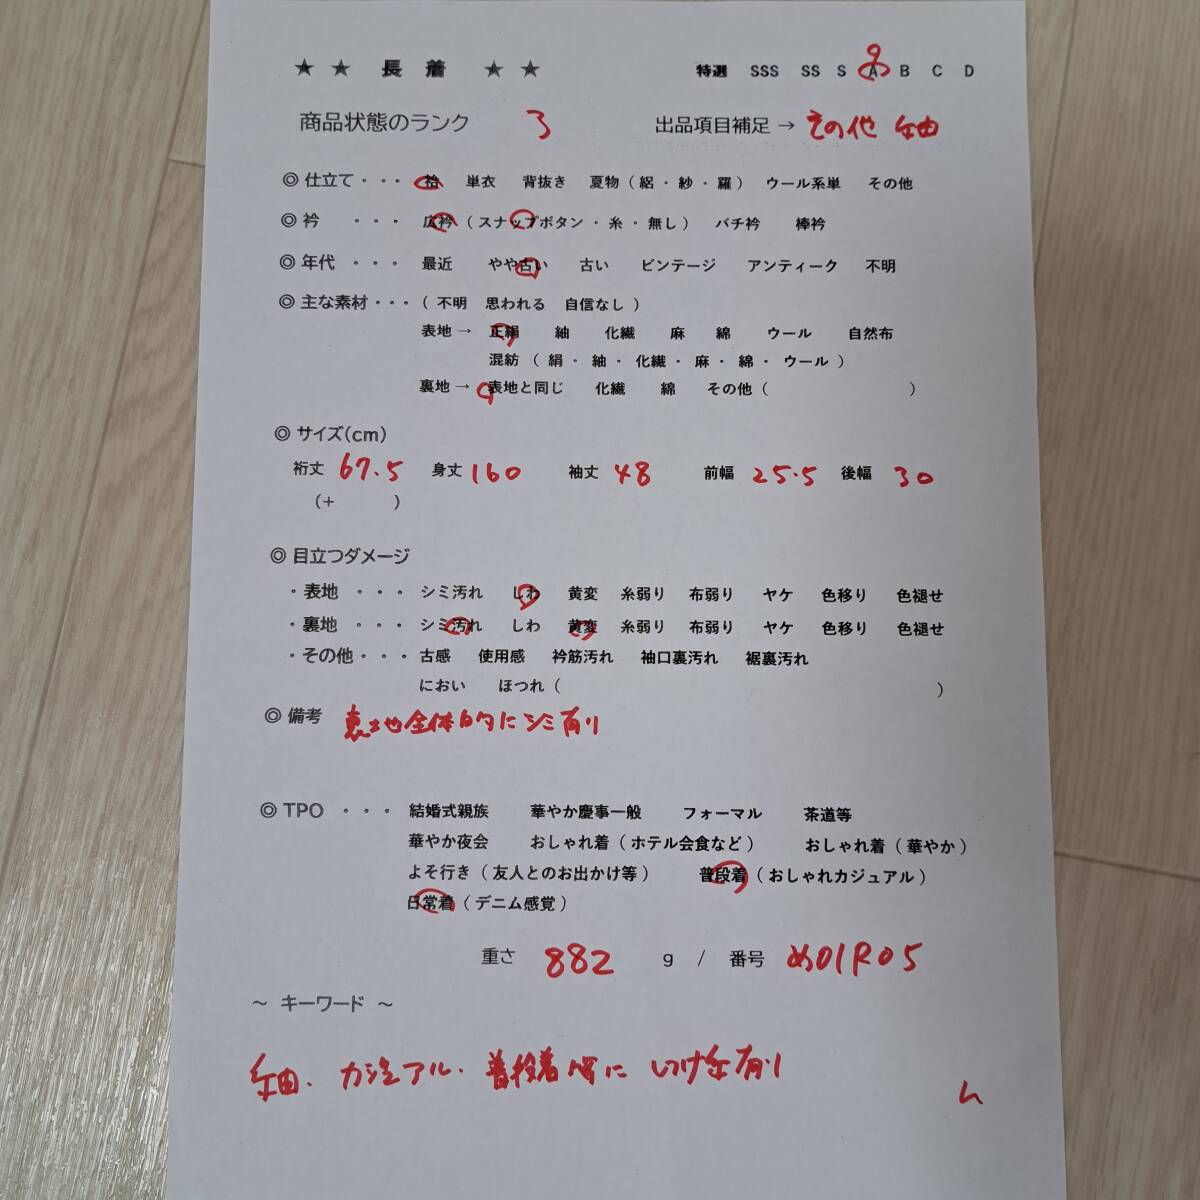 ★ ★ 長 着 ★ ★ 特選 SSS SS S A B C D
商品状態のランク 3 出品項目補足 → その他 紬
◎ 仕立て・・・ 袷 単衣 背抜き 夏物（絽・紗・羅） ウール系単 その他
◎ 衿 ・・・ 広衿（スナップボタン・糸・無し） バチ衿 棒衿
◎ 年代 ・・・ 最近 やや古い 古い ビンテージ アンティーク 不明
◎ 主な素材・・・（ 不明 思われる 自信なし ）
表地 → 正絹 紬 化繊 麻 綿 ウール 自然布
混紡（ 絹・紬・化繊・麻・綿・ウール ）
裏地 → 表地と同じ 化繊 綿 その他（ ）
◎ サイズ(cm)
裄丈 67.5 身丈 160 袖丈 48 前幅 25.5 後幅 30
(+ )
◎ 目立つダメージ
・表地 ・・・ シミ汚れ しわ 黄変 糸弱り 布弱り ヤケ 色移り 色褪せ
・裏地 ・・・ シミ汚れ しわ 黄変 糸弱り 布弱り ヤケ 色移り 色褪せ
・その他・・・ 古感 使用感 衿筋汚れ 袖口裏汚れ 裾裏汚れ
におい ほつれ（ ）
◎ 備考 裏地全体的にシミ有り
◎ TPO ・・・ 結婚式親族 華やか慶事一般 フォーマル 茶道等
華やか夜会 おしゃれ着（ホテル会食など） おしゃれ着（華やか）
よそ行き（友人とのお出かけ等） 普段着（おしゃれカジュアル）
日常着（デニム感覚）
重さ 882 g / 番号 め01R05
～ キーワード ～
紬、カジュアル、普段着 しつけ糸有り